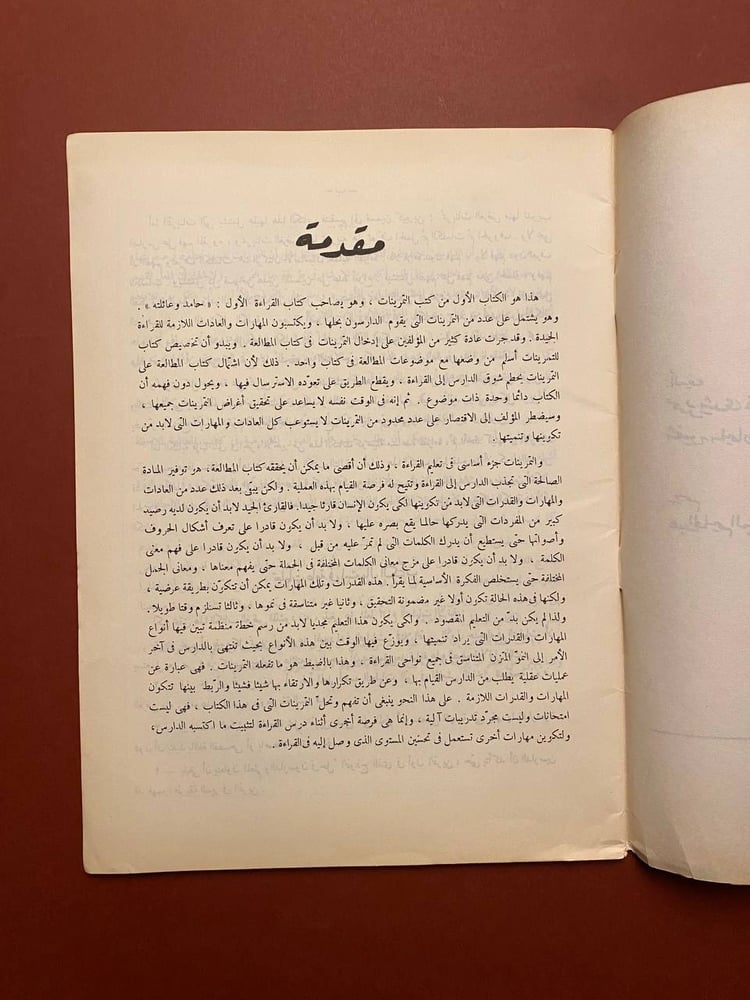 مقدمة
هذا هو الكتاب الأول من كتب التمرينات ، وهو يصاحب كتاب القراءة الأول : « حامد وعائلته » .
وهو يشتمل على عدد من التمرينات التى يقوم الدارسون بحلها ، ويكتسبون المهارات والعادات اللازمة للقراءة
الجيدة . وقد جرت عادة كثير من المؤلفين على إدخال التمرينات فى كتاب المطالعة . ويبدو أن تخصيص كتاب
للتمرينات أسلم من وضعها مع موضوعات المطالعة فى كتاب واحد . ذلك لأن اشتمال كتاب المطالعة على
التمرينات يحطم شوق الدارس إلى القراءة . ويقطع الطريق على تعوّده الاسترسال فيها ، ويحول دون فهمه أن
الكتاب دائما وحدة ذات موضوع . ثم إنه فى الوقت نفسه لا يساعد على تحقيق أغراض التمرينات جميعها ،
وسيضطر المؤلف إلى الاقتصار على عدد محدود من التمرينات لا يستوعب كل العادات والمهارات التى لابد من
تكوينها وتنميتها .
والتمرينات جزء أساسى فى تعليم القراءة ، وذلك أن أقصى ما يمكن أن يحققه كتاب المطالعة، هو توفير المادة
الصالحة التى تجذب الدارس إلى القراءة وتتيح له فرصة القيام بهذه العملية . ولكن يبقى بعد ذلك عدد من العادات
والمهارات والقدرات التى لابد من تكوينها لكى يكون الإنسان قارئا جيدا. فالقارئ الجيد لابد أن يكون لديه رصيد
كبير من المفردات التى يدركها حالما يقع بصره عليها ، ولا بد أن يكون قادرا على تعرف أشكال الحروف
وأصواتها حتى يستطيع أن يدرك الكلمات التى لم تمرّ عليه من قبل ، ولا بد أن يكون قادرا على فهم معنى
الكلمة ، ولا بد أن يكون قادرا على مزج معانى الكلمات المختلفة فى الجملة حتى يفهم معناها ، ومعانى الجمل
المختلفة حتى يستخلص الفكرة الأساسية لما يقرأ . هذه القدرات وتلك المهارات يمكن أن تتكوّن بطريقة عرضية ،
ولكنها فى هذه الحالة تكون أولا غير مضمونة التحقيق ، وثانيا غير متناسقة فى نموها ، وثالثا تستلزم وقتا طويلا.
ولذا لم يكن بدّ من التعليم المقصود . ولكى يكون هذا التعليم مجديا لابد من رسم خطة منظمة تبين فيها أنواع
المهارات والقدرات التى يراد تنميتها ، ويوزع فيها الوقت بين هذه الأنواع بحيث تنتهى بالدارس فى آخر
الأمر إلى النموّ المتزن المتناسق فى جميع نواحى القراءة ، وهذا بالضبط هو ما تفعله التمرينات . فهى عبارة عن
عمليات عقلية يطلب من الدارس القيام بها ، وعن طريق تكرارها والارتقاء بها شيئا فشيئا والربط بينها تتكون
المهارات والقدرات اللازمة . على هذا النحو ينبغى أن تفهم وتحلّ التمرينات التى فى هذا الكتاب ، فهى ليست
امتحانات وليست مجرّد تدريبات آلية ، وإنما هى فرصة أخرى أثناء درس القراءة لتثبيت ما اكتسبه الدارس،
ولتكوين مهارات أخرى تستعمل فى تحسين المستوى الذى وصل إليه فى القراءة .